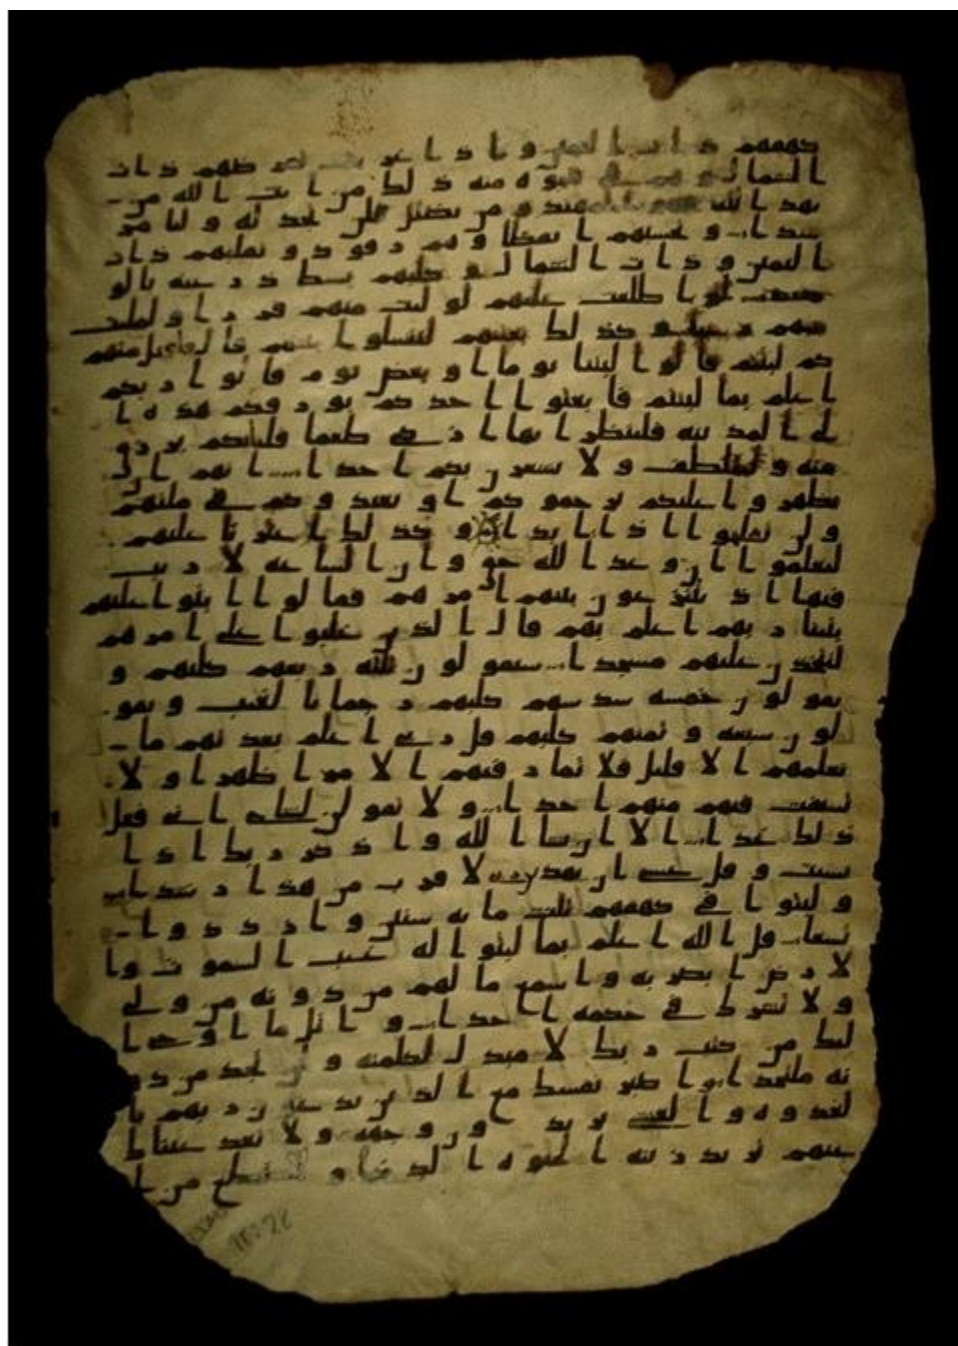 كهفهم ذات اليمين واذا غربت تقرضهم ذات
الشمال وهم في فجوه منه ذلك من ايت الله من
يهد الله فهو المهتد ومن يضلل فلن تجد له وليا مر
شدا وتحسبهم ايقظا وهم رقود ونقلبهم ذات
اليمين وذات الشمال وكلبهم بسط ذرعيه بالو
صيد لو اطلعت عليهم لوليت منهم فررا ولملت
منهم رعبا وكذلك بعثنهم ليتسلوا بينهم قال قايل منهم
كم لبثتم قالوا لبثنا يوما او بعض يوم قالوا ربكم
اعلم بما لبثتم فابعثوا احدكم بورقكم هذه ا
لى المدينه فلينظر ايها ازكى طعما فلياتكم برزق
منه وليتلطف ولا يشعرن بكم احدا انهم ان
يظهروا عليكم يرجموكم او يعيدوكم في ملتهم
ولن تفلحوا اذا ابدا وكذلك اعثرنا عليهم
ليعلموا ان وعد الله حق وان الساعه لا ريب
فيها اذ يتنزعون بينهم امرهم فقالوا ابنوا عليهم
بنينا ربهم اعلم بهم قال الذين غلبوا على امرهم
لنتخذن عليهم مسجدا سيقولون ثلثه ربعهم كلبهم و
يقولون خمسه سدسهم كلبهم رجما بالغيب ويقو
لون سبعه وثمنهم كلبهم قل ربي اعلم بعدتهم ما
يعلمهم الا قليل فلا تمار فيهم الا مرا ظهرا ولا
تستفت فيهم منهم احدا ولا تقولن لشاي اني فعل
ذلك غدا الا ان يشا الله واذكر ربك اذا
نسيت وقل عسى ان يهدين لاقرب من هذا رشدا
ولبثوا في كهفهم ثلث مايه سنين وازددوا
تسعا قل الله اعلم بما لبثوا له غيب السموت وا
لارض ابصر به واسمع ما لهم من دونه من ولي
ولا تشرك في حكمه احدا واتل ما اوحي ا
ليك من كتب ربك لا مبدل لكلمته ولن تجد من دو
نه ملتحدا واصبر نفسك مع الذين يدعون ربهم با
لغدوه والعشي يريدون وجهه ولا تعد عينك
عنهم تريد زينه الحيوه الدنيا ولا تطع من ا